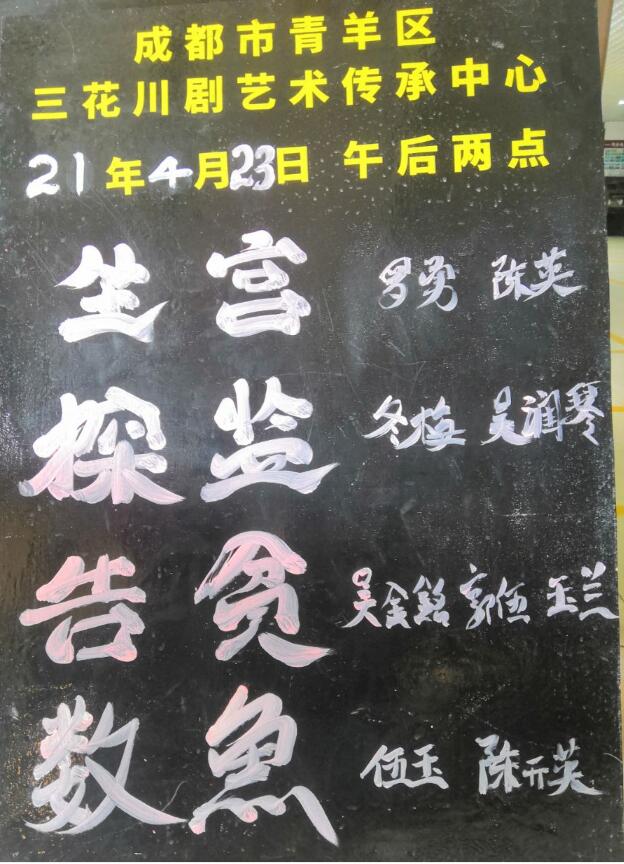 成都市青羊区
三花川剧艺术传承中心
21年4月23日 午后两点
坐宫 罗勇 陈英
探监 冬梅 吴润琴
告贫 吴金銘 郭伍 玉兰
数鱼 伍玉 陈开英